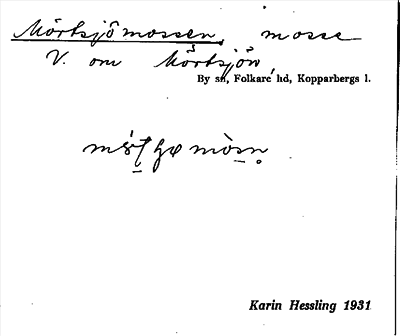 Mörtsjömossen, mosse
V. om Mörtsjön,
By sn, Folkare hd, Kopparbergs l.
Karin Hessling 1931